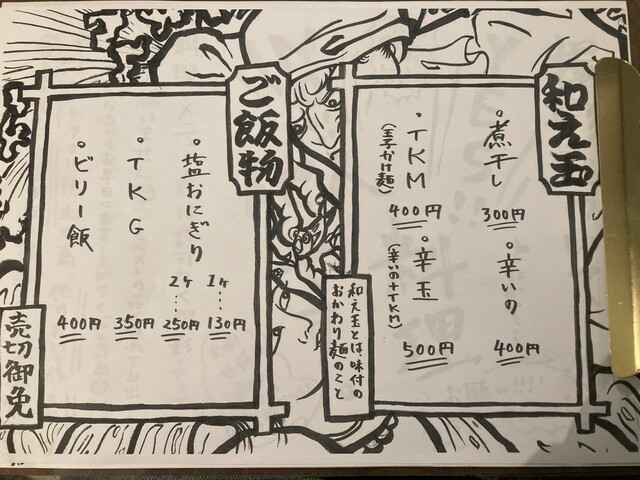 和え玉
。煮干し
300円
。辛いの
400円
・TKM
(玉子かけ麺)
400円
・辛玉
(辛いの+TKM)
500円
和え玉とは、味付の
おかわり麺のこと
ご飯物
。塩おにぎり
1ヶ…130円
2ヶ…250円
。TKG
350円
。ビリー飯
400円
売切御免